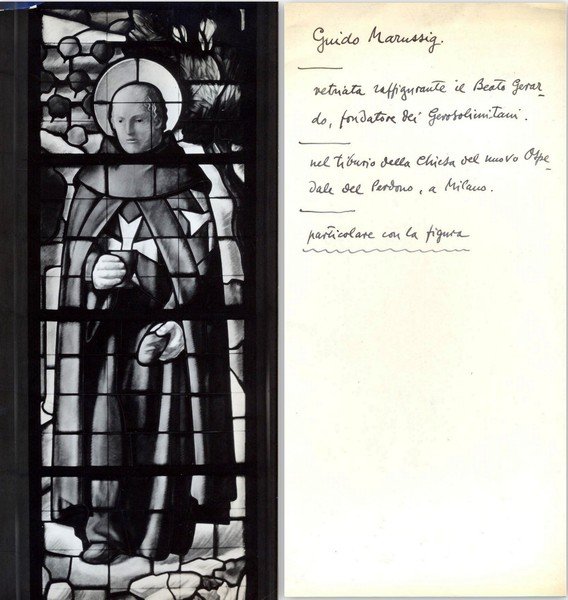 Guido Marussig.
vetriata raffigurante il Beato Gerar-
do, fondatore dei Gerosolimitani.
nel tiburio della Chiesa del nuovo Ospe-
dale del Perdono, a Milano.
particolare con la figura